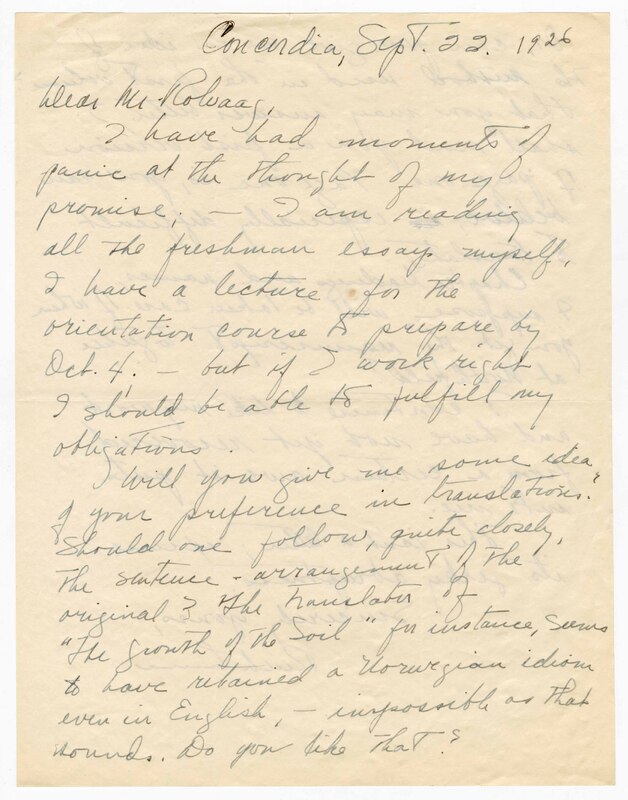 Concordia, Sept. 22. 1926
Dear Mr. Rolvaag,
I have had moments of
panic at the thought of my
promise; — I am reading
all the freshman essays myself,
I have a lecture for the
orientation course to prepare by
Oct. 4, — but if I work right
I should be able to fulfill my
obligations.
Will you give me some idea
of your preference in translations.
Should one follow, quite closely,
the sentence-arrangement of the
original? The translator of
"The Growth of the Soil" for instance, seems
to have retained a Norwegian idiom
even in English, — impossible as that
sounds. Do you like that?